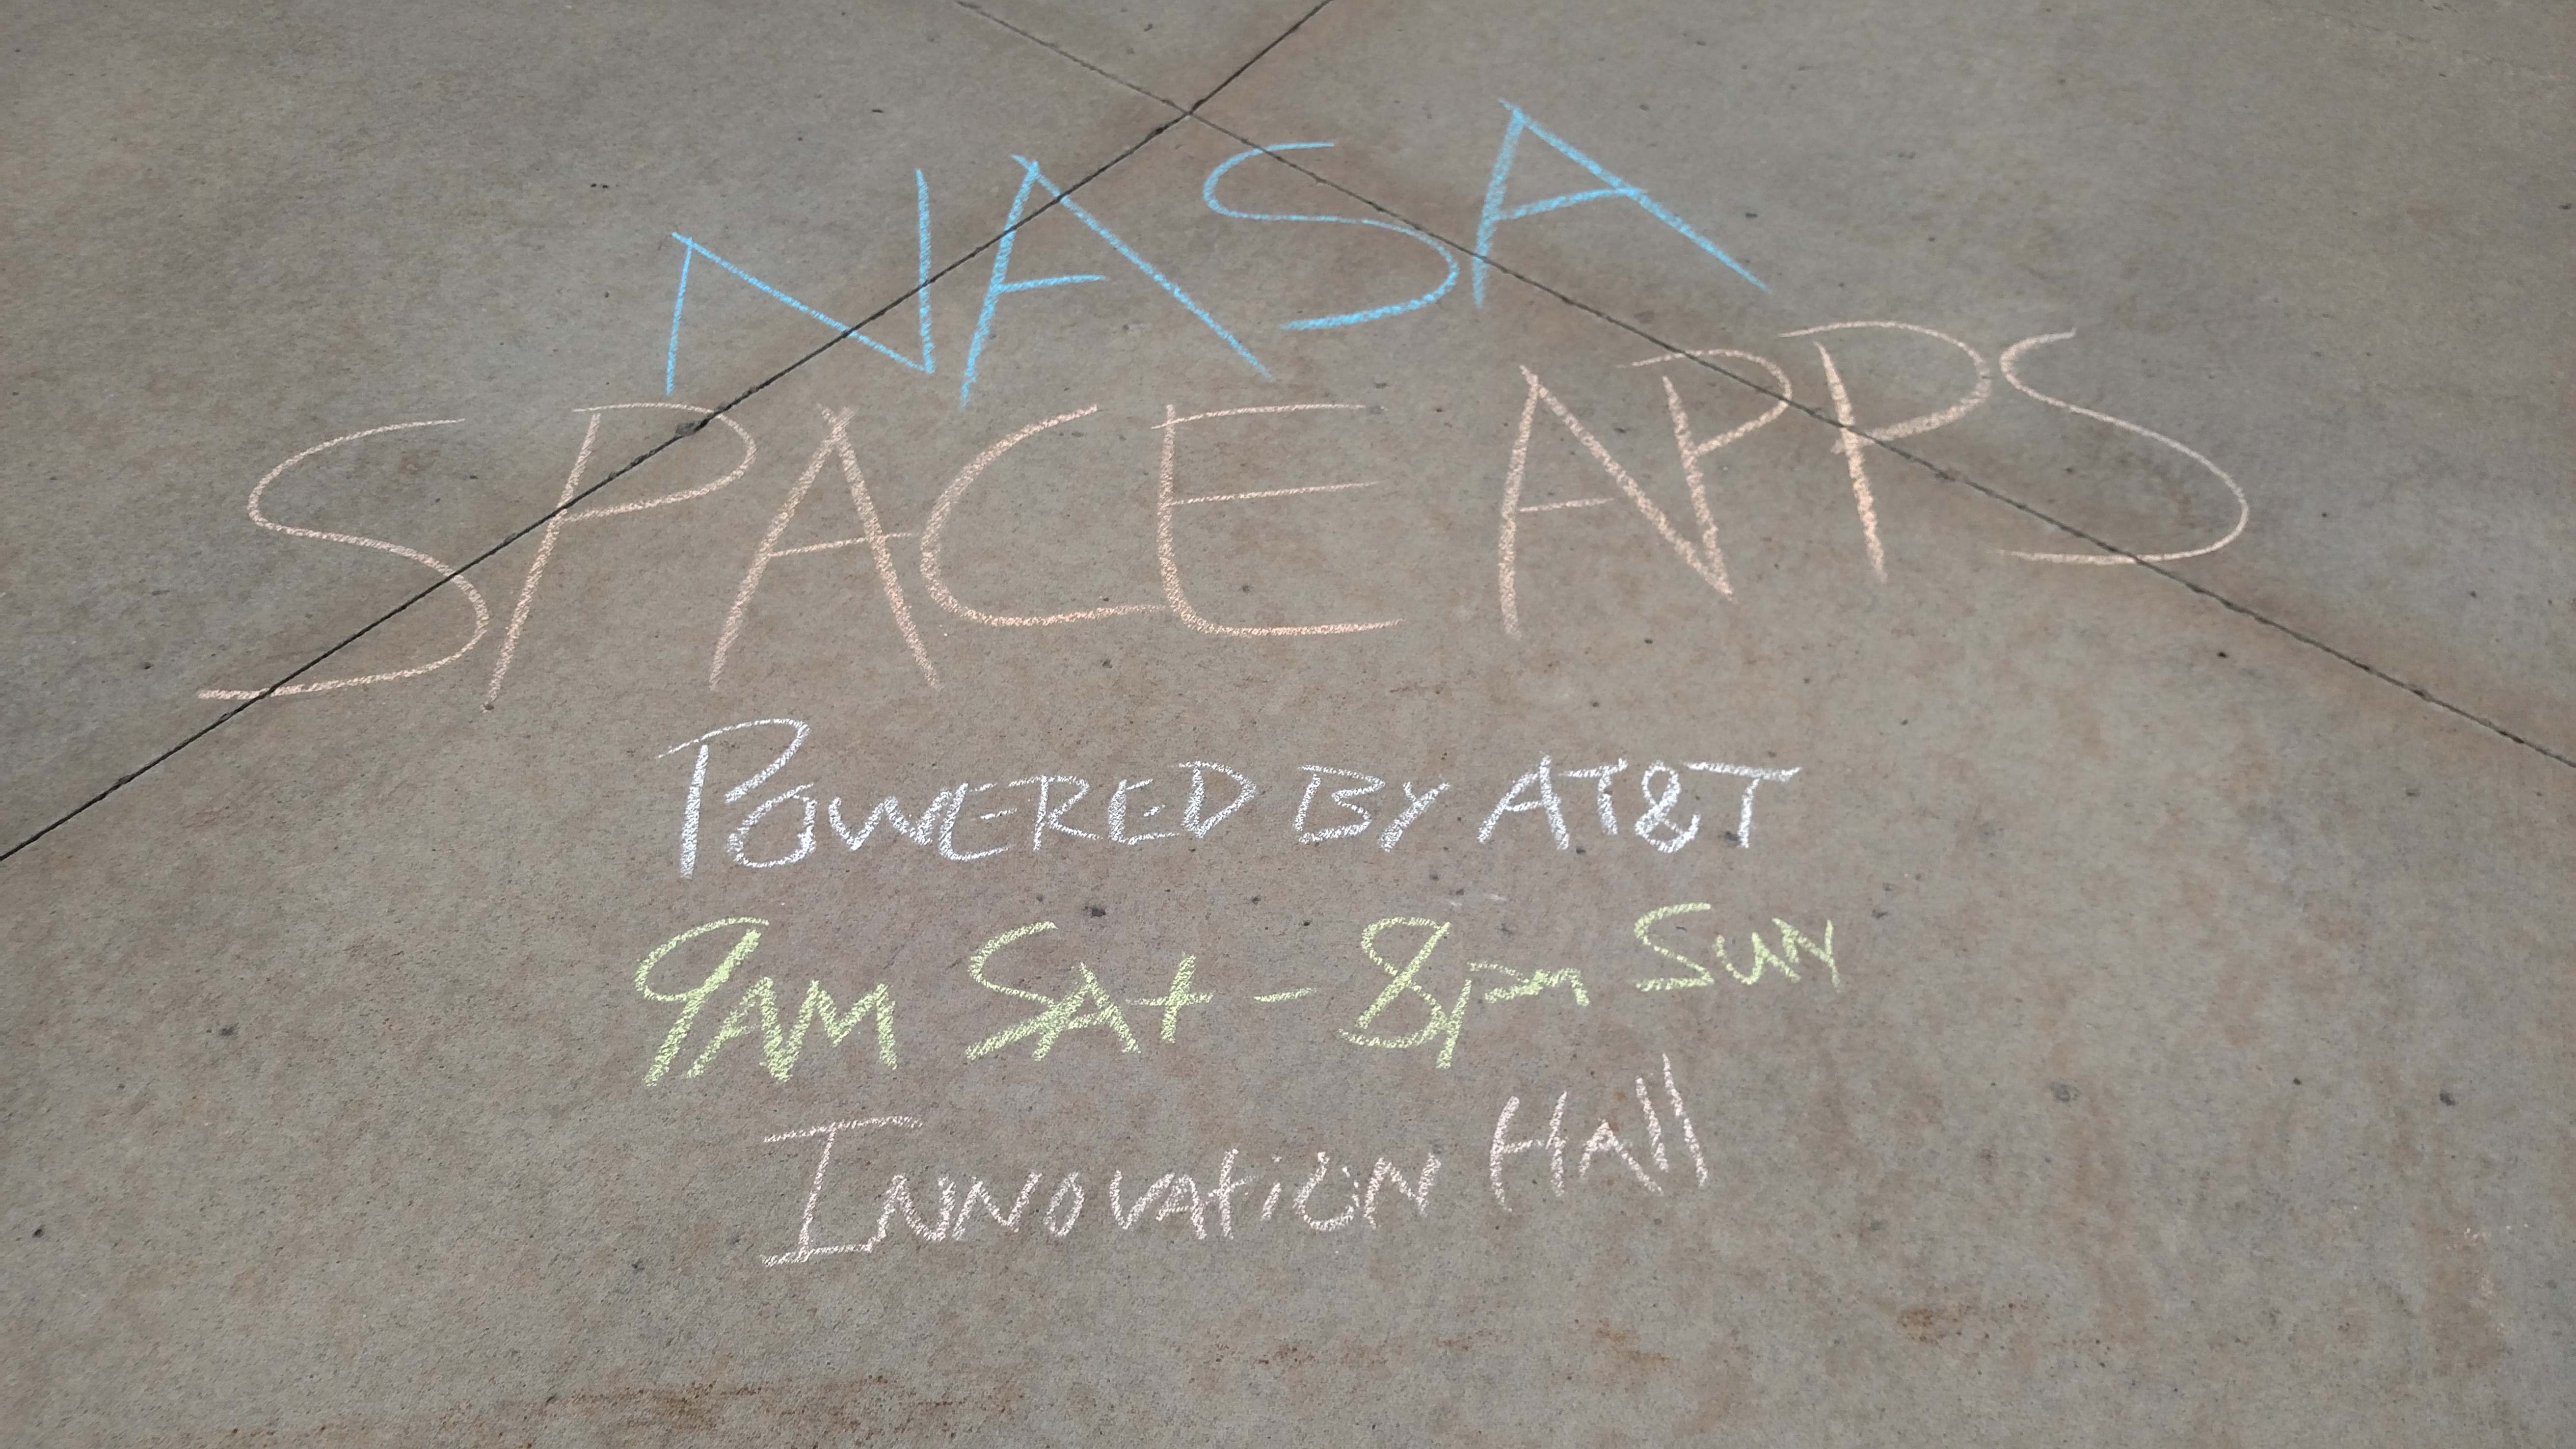 NASA
SPACE APPS
POWERED BY AT&T
9AM SAt - 8pm SUN
INNOVATiON HAll